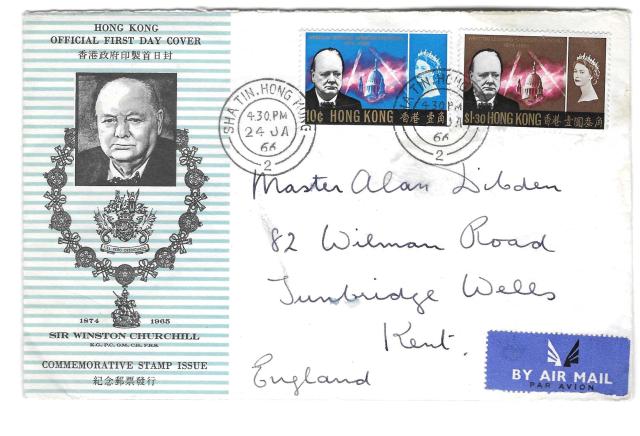 HONG KONG
OFFICIAL FIRST DAY COVER
香港政府印製首日封
1874 1965
SIR WINSTON CHURCHILL
K.G., P.C., O.M., C.H., F.R.S.
COMMEMORATIVE STAMP ISSUE
紀念郵票發行
10¢ HONG KONG 香港 壹角
$1·30 HONG KONG 香港 壹圓叁角
SHA TIN, HONG KONG
4.30.PM
24 JA
66
2
SHA TIN, HONG
4.30.PM
JA
66
2
Master Alan Dibden
82 Wilman Road
Tunbridge Wells
Kent.
England
BY AIR MAIL
PAR AVION